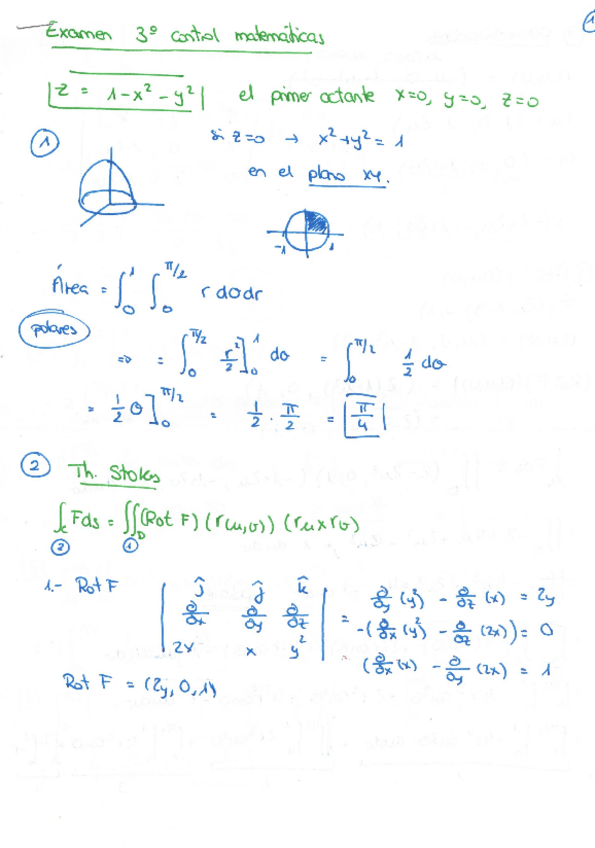 1
Examen 3º control matemáticas
z = 1-x²-y² el primer octante x=0, y=0, z=0
1 si z=0 → x²+y²=1
en el plano xy.
-1 1
Área = ∫₀¹ ∫₀^π/2 r dθdr
polares
⇒ = ∫₀^π/2 r²/2]₀¹ dθ = ∫₀^π/2 1/2 dθ
= 1/2 θ]₀^π/2 = 1/2 · π/2 = π/4
2 Th. Stokes
∫c Fds = ∬D (Rot F) (r(u,v)) (ru x rv)
2 1
1.- Rot F
î ĵ k̂
∂/∂x ∂/∂y ∂/∂z
2x x y²
= ∂/∂y (y²) - ∂/∂z (x) = 2y
-(∂/∂x (y²) - ∂/∂z (2x)) = 0
(∂/∂x (x) - ∂/∂y (2x) = 1
Rot F = (2y, 0, 1)